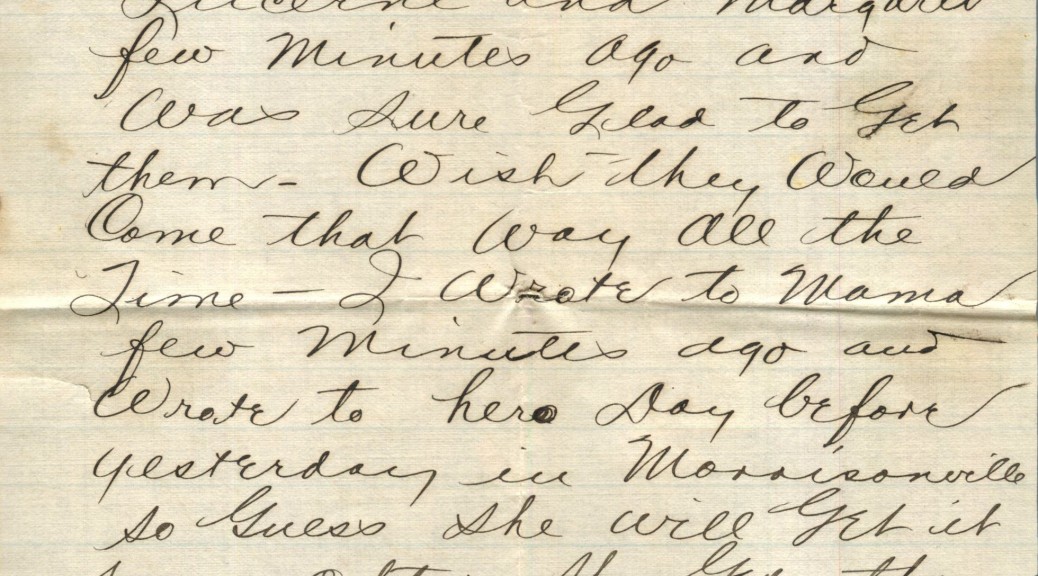 Lucerne and Margaret
few Minutes ago and
Was Sure Glad to Get
them - Wish they Would
Come that Way All the
Time - I Wrote to Mama
few Minutes ago and
Wrote to her Day before
yesterday in Morrisonville
so Guess She will Get it